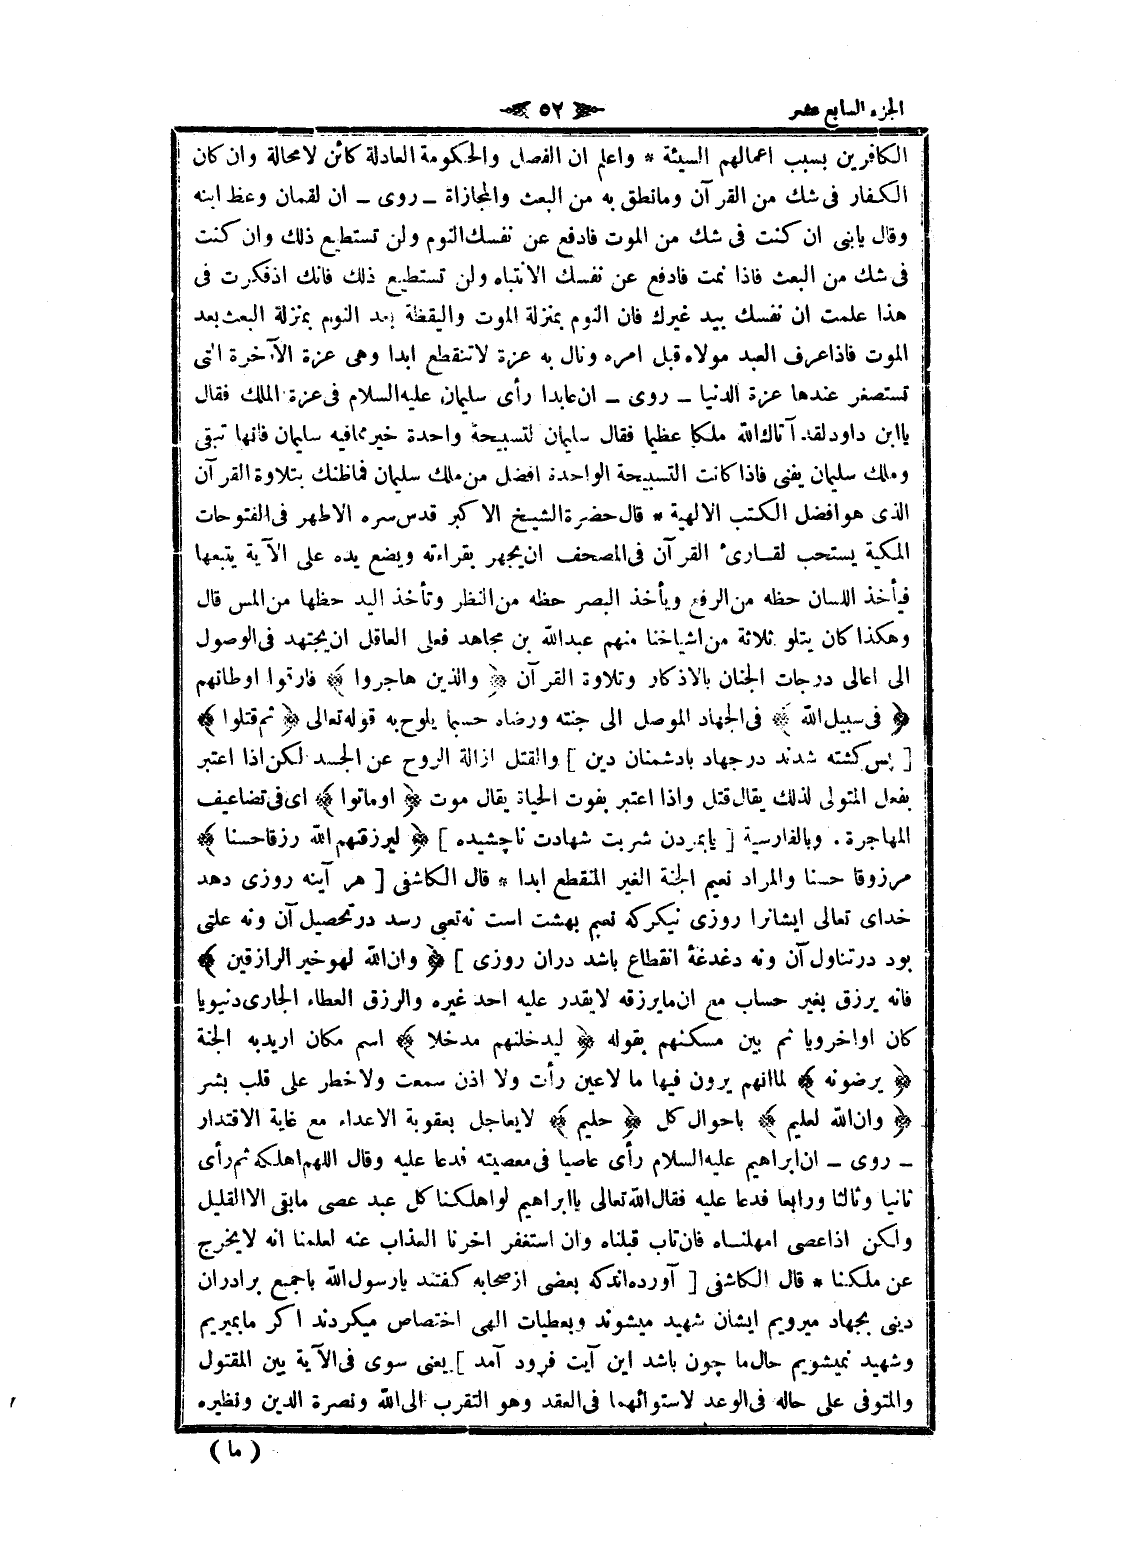 الجزء السابع عشر
٥٢
الكافرين بسبب اعمالهم السيئة * واعلم ان الفصل والحكومة العادلة كائن لامحالة وان كان
الكفار فى شك من القرآن ومانطق به من البعث والمجازاة ـ روى ـ ان لقمان وعظ ابنه
وقال يابنى ان كنت فى شك من الموت فادفع عن نفسك النوم ولن تستطيع ذلك وان كنت
فى شك من البعث فاذا نمت فادفع عن نفسك الانتباه ولن تستطيع ذلك فانك اذفكرت فى
هذا علمت ان نفسك بيد غيرك فان النوم بمنزلة الموت واليقظة بعد النوم بمنزلة البعث بعد
الموت فاذاعرف العبد مولاه قبل امره ونال به عزة لاتنقطع ابدا وهى عزة الآخرة التى
تستصغر عندها عزة الدنيا ـ روى ـ ان عابدا رأى سليمان عليه السلام فى عزة الملك فقال
ياابن داود لقد آتاك الله ملكا عظيما فقال سليمان لتسبيحة واحدة خير ممافيه سليمان فانها تبقى
وملك سليمان يفنى فاذا كانت التسبيحة الواحدة افضل من ملك سليمان فماظنك بتلاوة القرآن
الذى هو افضل الكتب الالهية * قال حضرة الشيخ الاكبر قدس سره الاطهر فى الفتوحات
المكية يستحب لقــارئ القرآن فى المصحف ان يجهر بقراءته ويضع يده على الآية يتبعها
فيأخذ اللسان حظه من الرفع ويأخذ البصر حظه من النظر وتأخذ اليد حظها من المس قال
وهكذا كان يتلو ثلاثة من اشياخنا منهم عبدالله بن مجاهد فعلى العاقل ان يجتهد فى الوصول
الى اعالى درجات الجنان بالاذكار وتلاوة القرآن ﴿ والذين هاجروا ﴾ فارقوا اوطانهم
﴿ فى سبيل الله ﴾ فى الجهاد الموصل الى جنته ورضاه حسبما يلوح به قوله تعالى ﴿ ثم قتلوا ﴾
[ پس كشته شدند درجهاد بادشمنان دين ] والقتل ازالة الروح عن الجسد لكن اذا اعتبر
بفعل المتولى لذلك يقال قتل واذا اعتبر بفوت الحياة يقال موت ﴿ اوماتوا ﴾ اى فى تضاعيف
المهاجرة . وبالفارسية [ يابمردن شربت شهادت ناچشيده ] ﴿ ليرزقنهم الله رزقا حسنا ﴾
مرزوقا حسنا والمراد نعيم الجنة الغير المنقطع ابدا * قال الكاشفى [ هر آينه روزى دهد
خداى تعالى ايشانرا روزى نيكو كه نعيم بهشت است نه تعبى رسد درتحصيل آن ونه علتى
بود درتناول آن ونه دغدغهٔ انقطاع باشد دران روزى ] ﴿ وان الله لهو خير الرازقين ﴾
فانه يرزق بغير حساب مع ان مايرزقه لايقدر عليه احد غيره والرزق العطاء الجارى دنيويا
كان اواخرويا ثم بين مسكنهم بقوله ﴿ ليدخلنهم مدخلا ﴾ اسم مكان اريدبه الجنة
﴿ يرضونه ﴾ لماانهم يرون فيها ما لاعين رأت ولا اذن سمعت ولاخطر على قلب بشر
﴿ وان الله لعليم ﴾ باحوال كل ﴿ حليم ﴾ لايعاجل بعقوبة الاعداء مع غاية الاقتدار
ـ روى ـ ان ابراهيم عليه السلام رأى عاصيا فى معصيته فدعا عليه وقال اللهم اهلكه ثم رأى
ثانيا وثالثا ورابعا فدعا عليه فقال الله تعالى ياابراهيم لواهلكنا كل عبد عصى مابقى الاالقليل
ولكن اذاعصى امهلنــاه فان تاب قبلناه وان استغفر اخرنا العذاب عنه لعلمنا انه لايخرج
عن ملكنا * قال الكاشفى [ آورده اندكه بعضى ازصحابه گفتند يارسول الله باجمع برادران
دينى بجهاد ميرويم ايشان شهيد ميشوند وبعطيات الهى اختصاص ميكردند اكر مابميريم
وشهيد نميشويم حال ما چون باشد اين آيت فرود آمد ] يعنى سوى فى الآية بين المقتول
والمتوفى على حاله فى الوعد لاستوائهما فى العقد وهو التقرب الى الله ونصرة الدين ونظيره
( ما )